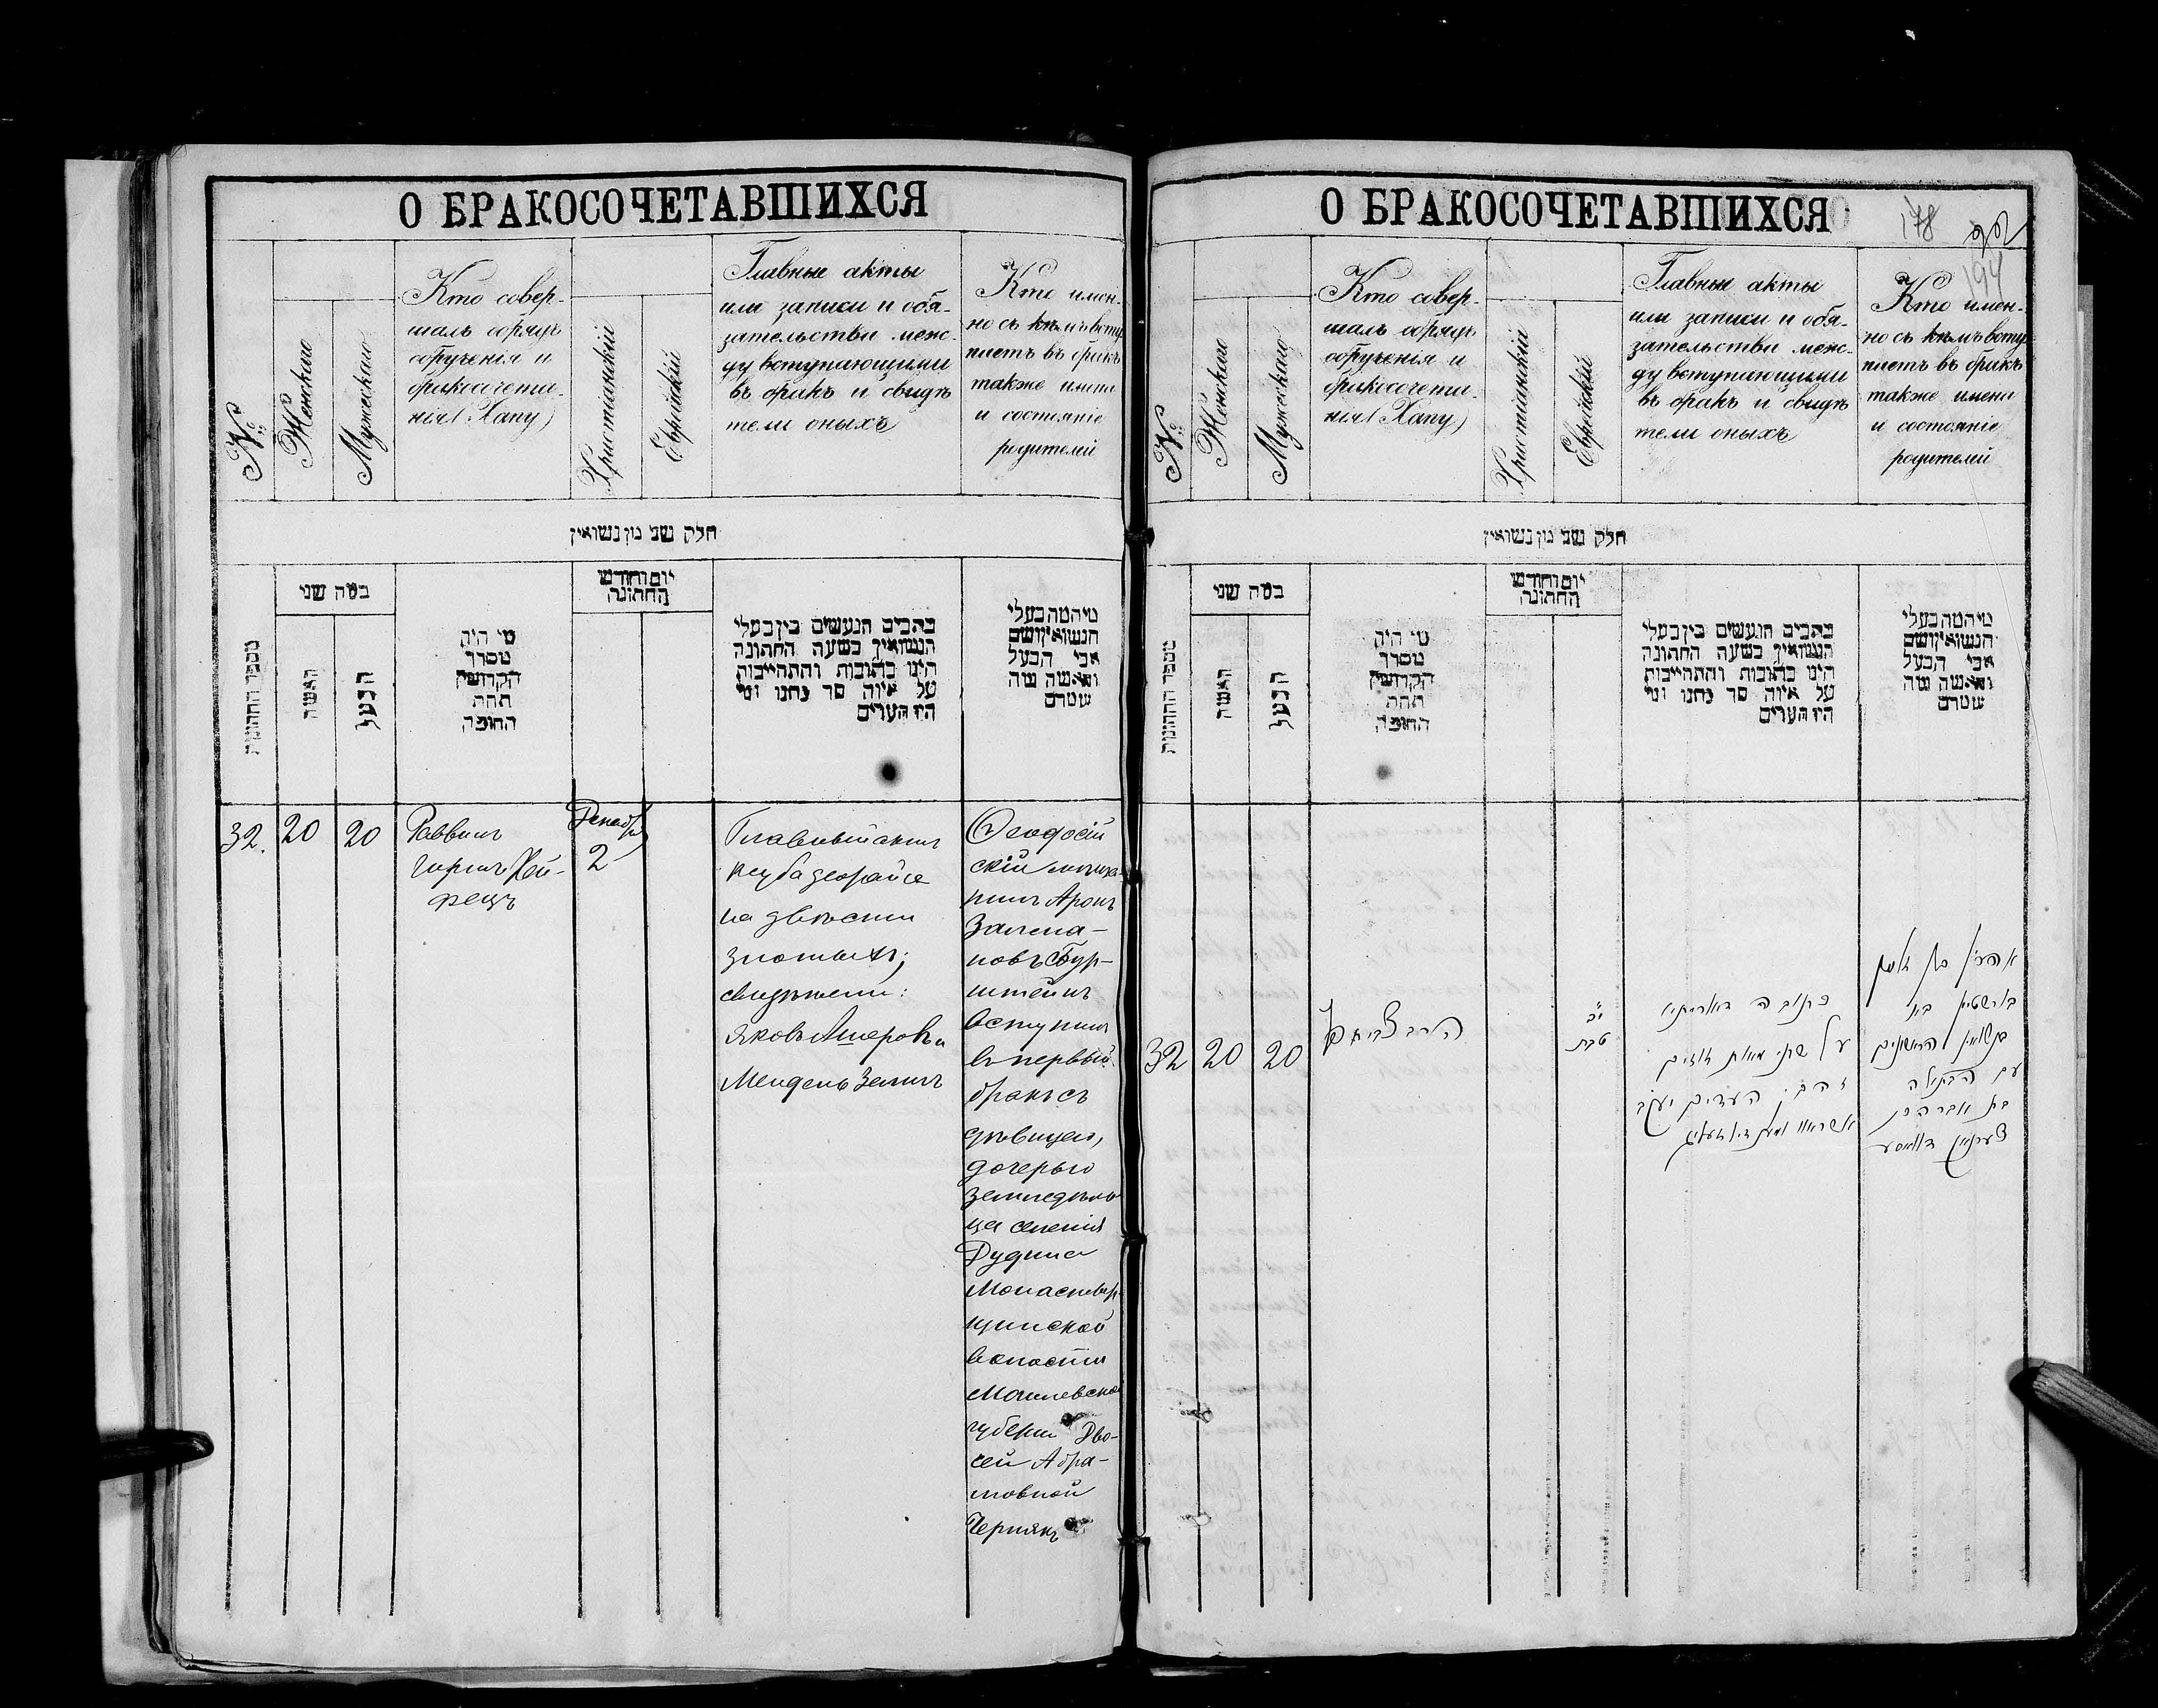 О БРАКОСОЧЕТАВШИХСЯ
№
Женскаго
Мужескаго
Кто совер-
шалъ обрядъ
обрученія и
бракосочета-
нія (Хапу)
Христіанскій
Еврейскій
Главные акты
или записи и обя-
зательства меж-
ду вступающими
въ бракъ и свидѣ
тели оныхъ
Кто имен-
но съ кѣмъ всту
паетъ въ бракъ
также имена
и состояніе
родителей
חלק שני מן נשואין
מספר החתונות
במה שני
האשה
הבעל
מי היה
מסדר
הקדושין
תחת
החופה
יום וחודש
החתונה
כתבים הנעשים בין בעלי
הנשואין בשעה החתונה
הינו כתובות והתחייבות
על איזה סך נתנו ומי
היו העדים
מי המה בעלי
הנשואין ושם
אבי הבעל
והאשה מה
שמדם
32. 20 20
Раввинъ
Гиршъ Хей-
фецъ
Декабря
2
Главный актъ
кесуба деорайса
на двѣсти
злотыхъ;
свидѣтели:
Яковъ Ашеровъ и
Мендель
Ѳеодосій
скій мѣща-
нинъ Аронъ
Залма-
новъ Бур-
штейнъ
вступилъ
въ первый
бракъ съ
дѣвицею,
дочерью
земледѣль
ца селенія
Дудина
Монастыр
щинской
волости
Могилевской
губерніи Дво-
сей Абра-
мовной
Чернякъ
О БРАКОСОЧЕТАВШИХСЯ
178
194
№
Женскаго
Мужескаго
Кто совер-
шалъ обрядъ
обрученія и
бракосочета-
нія (Хапу)
Христіанскій
Еврейскій
Главные акты
или записи и обя-
зательства меж-
ду вступающими
въ бракъ и свидѣ
тели оныхъ
Кто имен-
но съ кѣмъ всту
паетъ въ бракъ
также имена
и состояніе
родителей
חלק שני מן נשואין
מספר החתונות
במה שני
האשה
הבעל
מי היה
מסדר
הקדושין
תחת
החופה
יום וחודש
החתונה
כתבים הנעשים בין בעלי
הנשואין בשעה החתונה
הינו כתובות והתחייבות
על איזה סך נתנו ומי
היו העדים
מי המה בעלי
הנשואין ושם
אבי הבעל
והאשה מה
שמדם
32 20 20
הרב
טבת
כתובה דאורייתא
על שתי מאות זוזים
העדים יעקב
אהרון בן זלמן
בורשטין בא
בנשואין הראשונים
עם הבתולה
בת אברהם